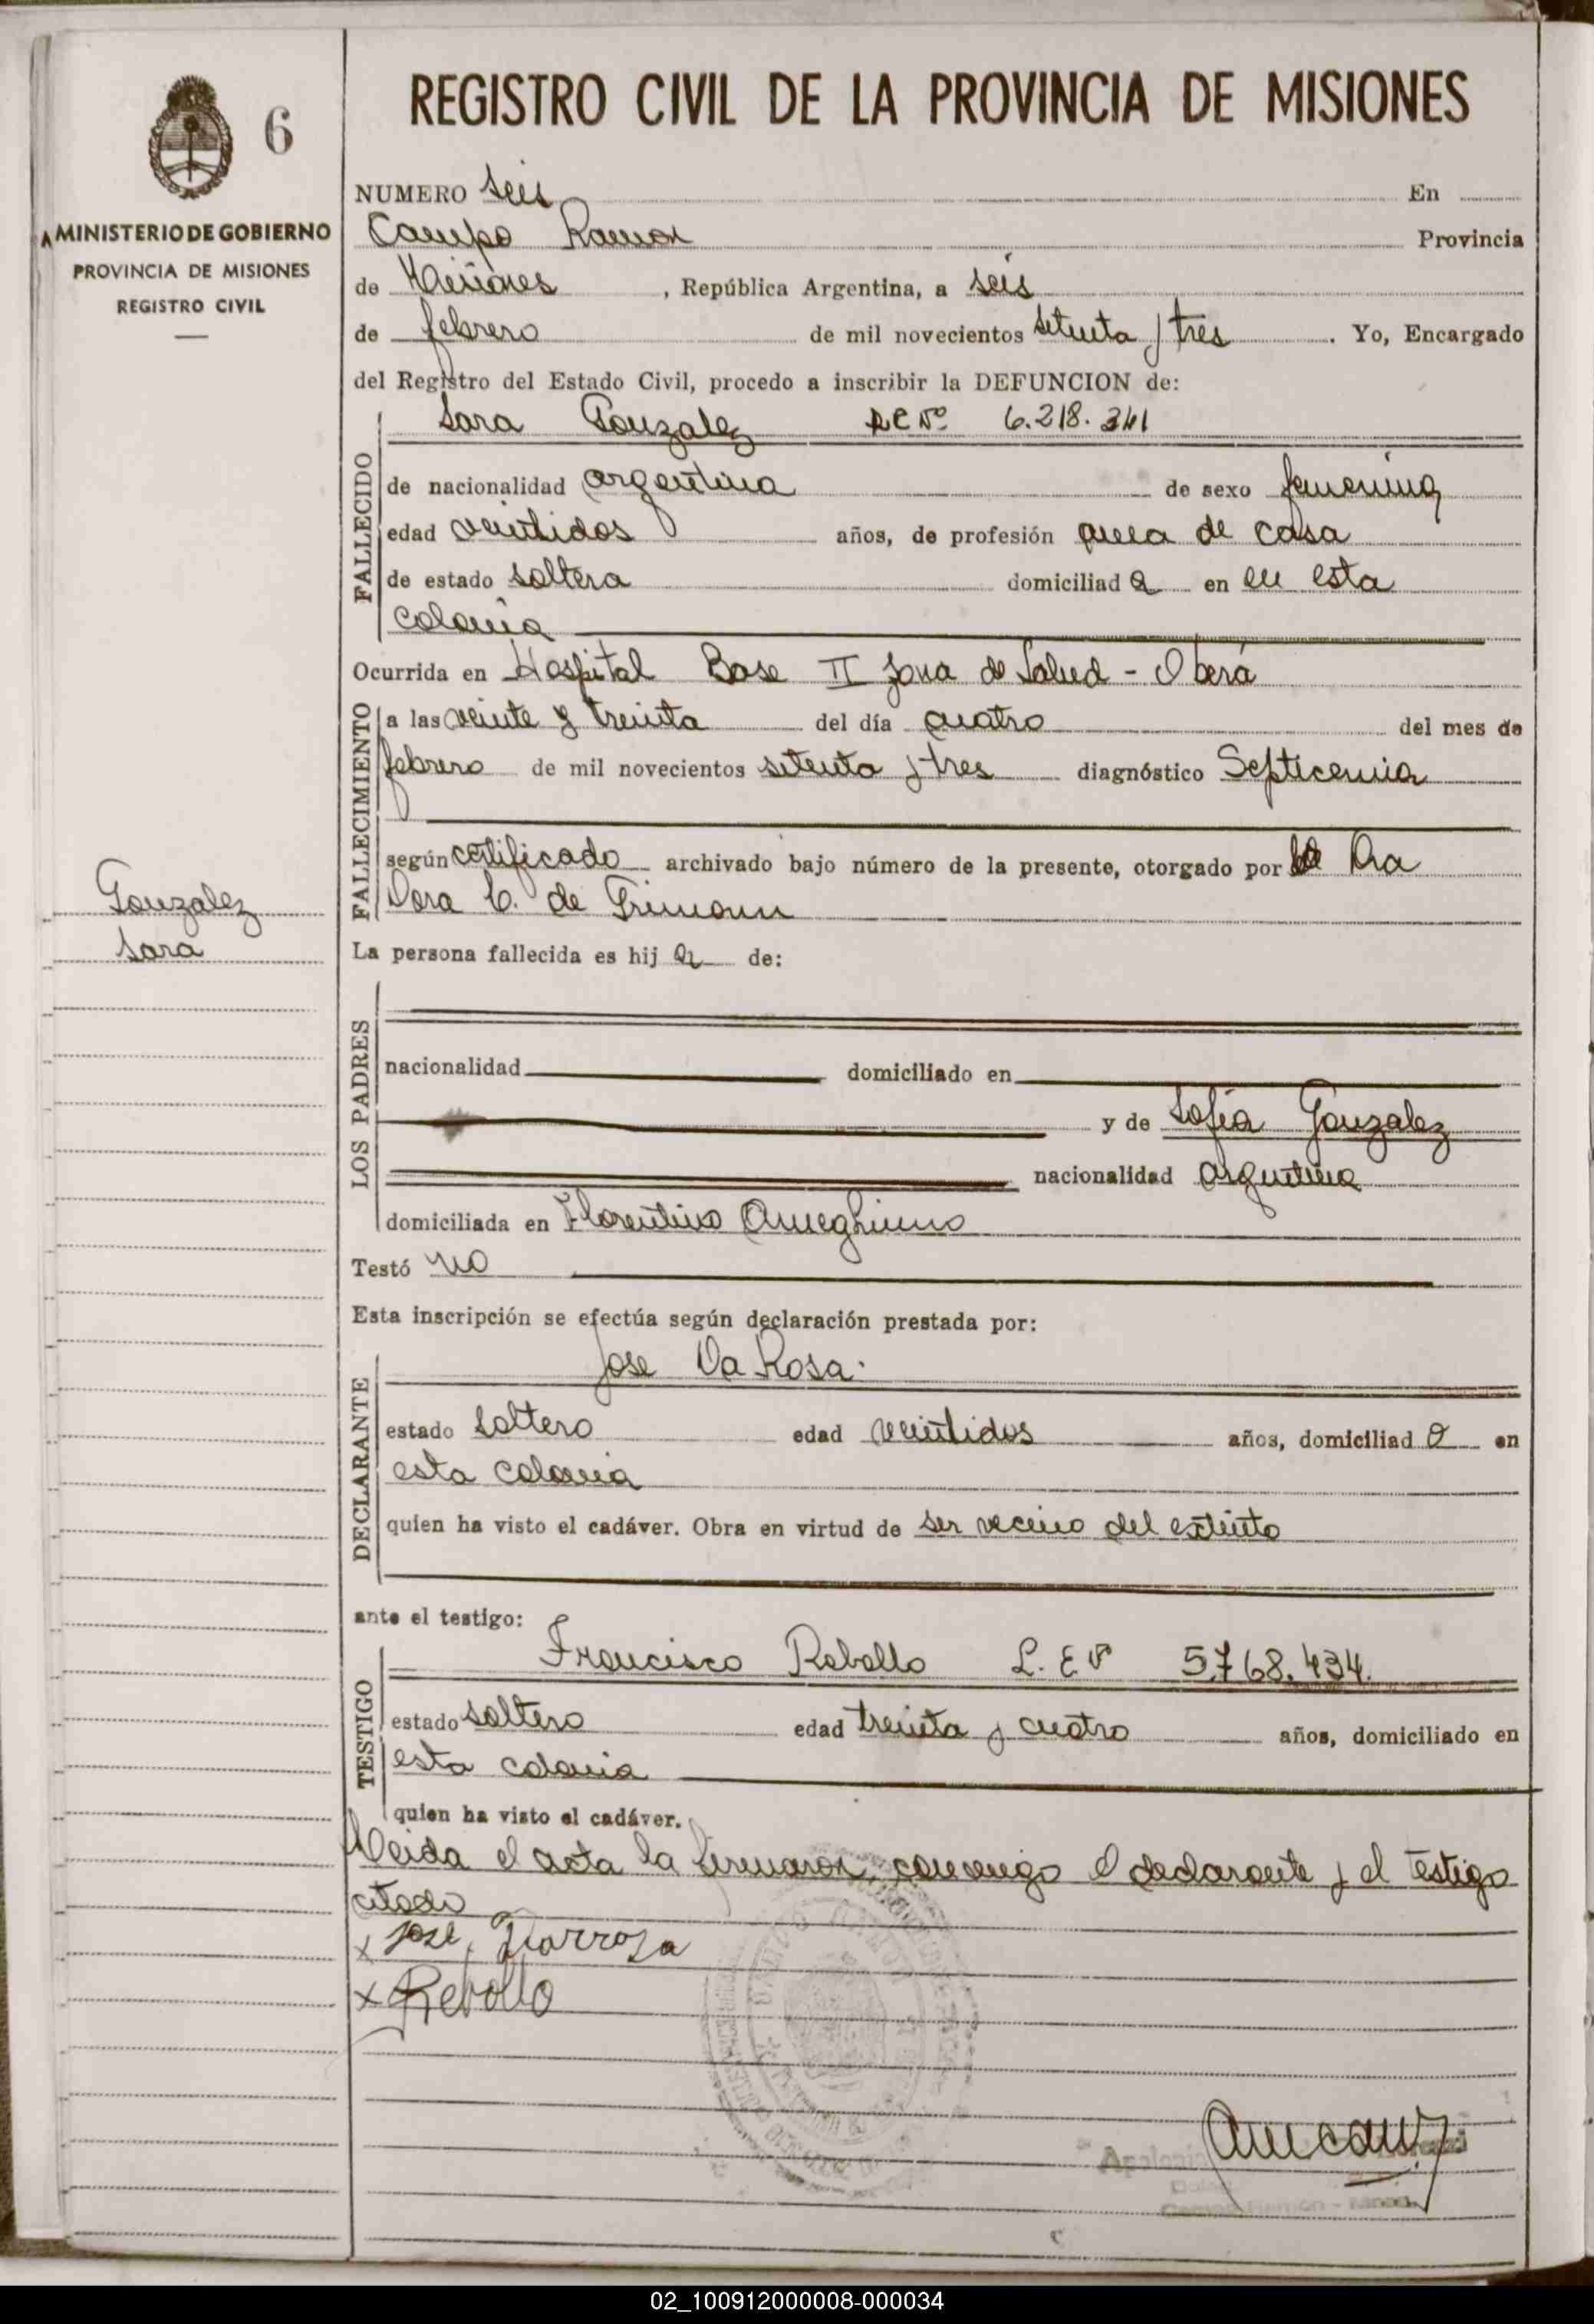 REGISTRO CIVIL DE LA PROVINCIA DE MISIONES
6
MINISTERIO DE GOBIERNO
PROVINCIA DE MISIONES
REGISTRO CIVIL
NUMERO seis En
Campo Ramon Provincia
de Misiones, República Argentina, a seis
de febrero de mil novecientos setenta y tres. Yo, Encargado
del Registro del Estado Civil, procedo a inscribir la DEFUNCION de:
FALLECIDO
Sara Gonzalez Nº 6.218.341
de nacionalidad argentina de sexo femenino
edad veintidos años, de profesión ama de casa
de estado soltera domiciliad a en en esta
colonia
Ocurrida en Hospital Base II zona de Salud - Oberá
FALLECIMIENTO
a las veinte y treinta del día cuatro del mes de
febrero de mil novecientos setenta y tres diagnóstico Septicemia
según certificado archivado bajo número de la presente, otorgado por la Dra
Dora C. de
Gonzalez
Sara
La persona fallecida es hij a de:
LOS PADRES
nacionalidad domiciliado en
y de Sofia Gonzalez
nacionalidad argentina
domiciliada en Florentino Ameghino
Testó no
Esta inscripción se efectúa según declaración prestada por:
DECLARANTE
Jose Da Rosa.
estado soltero edad veintidos años, domiciliad o en
esta colonia
quien ha visto el cadáver. Obra en virtud de ser vecino del extinto
ante el testigo:
TESTIGO
Francisco Rebollo L. E Nº 5.768.434.
estado soltero edad treinta y cuatro años, domiciliado en
esta colonia
quien ha visto el cadáver.
Leida el acta la firmaron, conmigo el declarante y el testigo
citado
x Jose Darrosa
x Rebollo
02_100912000008-000034